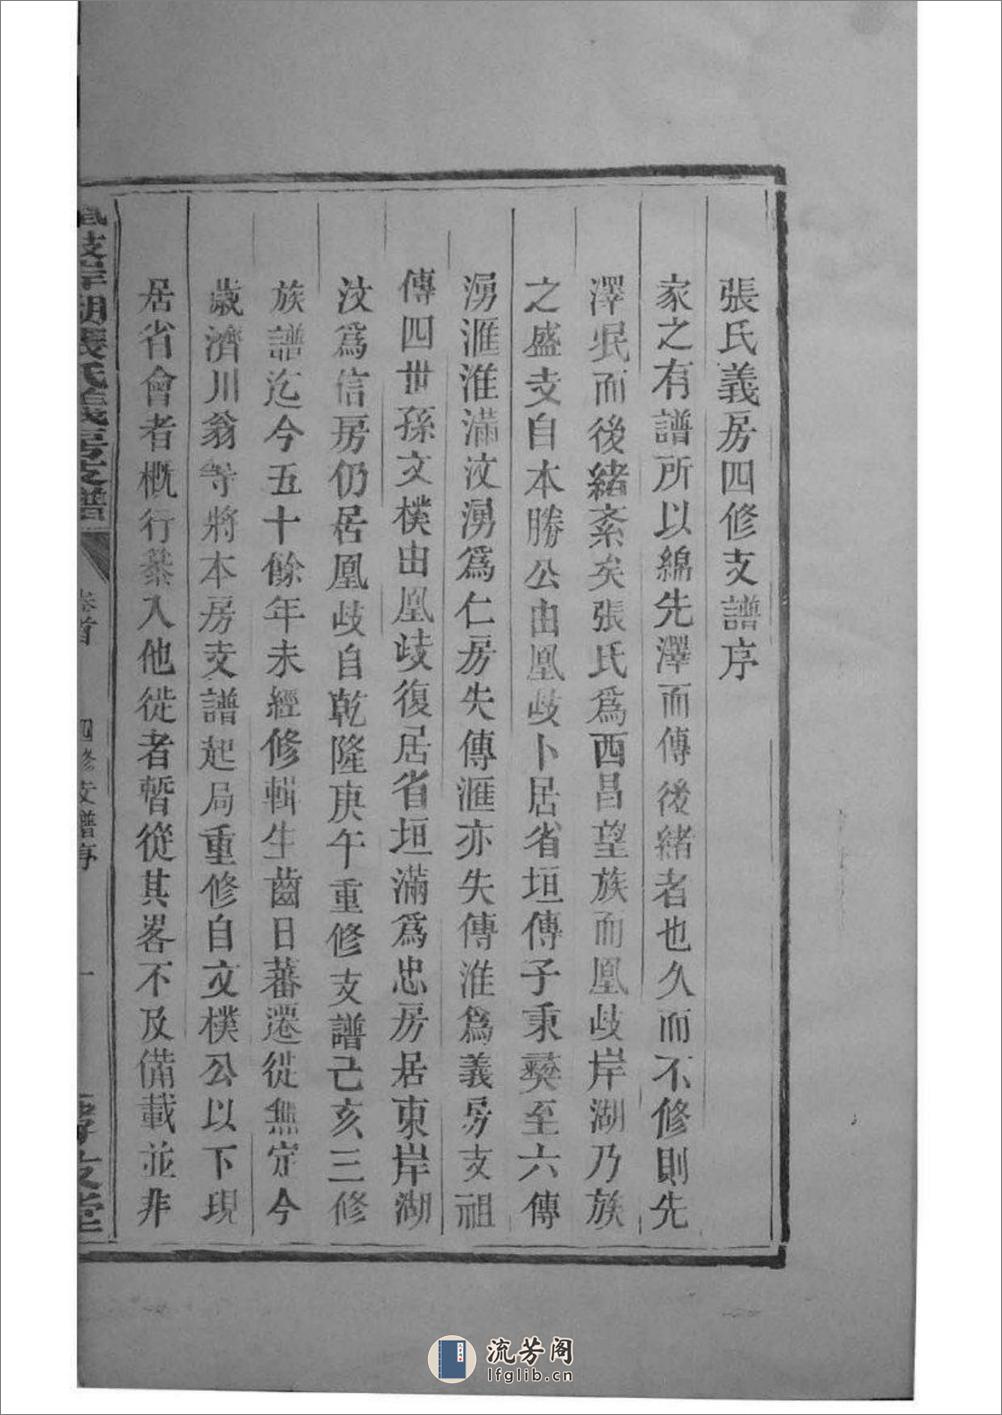 張氏義房四修支譜序
家之有譜所以綿先澤而傳後緒者也久而不修則先
澤泯而後緒紊矣張氏爲西昌望族而凰歧岸湖乃族
之盛支自本勝公由凰歧卜居省垣傳子秉彝至六傳
湧滙淮滿汶湧爲仁房失傳滙亦失傳淮爲義房支祖
傳四世孫文樸由凰歧復居省垣滿爲忠房居東岸湖
汶爲信房仍居凰歧自乾隆庚午重修支譜己亥三修
族譜迄今五十餘年未經修輯生齒日蕃遷徙無定今
歲濟川翁等將本房支譜起局重修自文樸公以下現
居省會者概行纂入他徙者暫從其畧不及備載並非
歧岸湖張氏義房支譜
卷首
四修支譜序
一
文堂
流芳阁
lfglib.cn